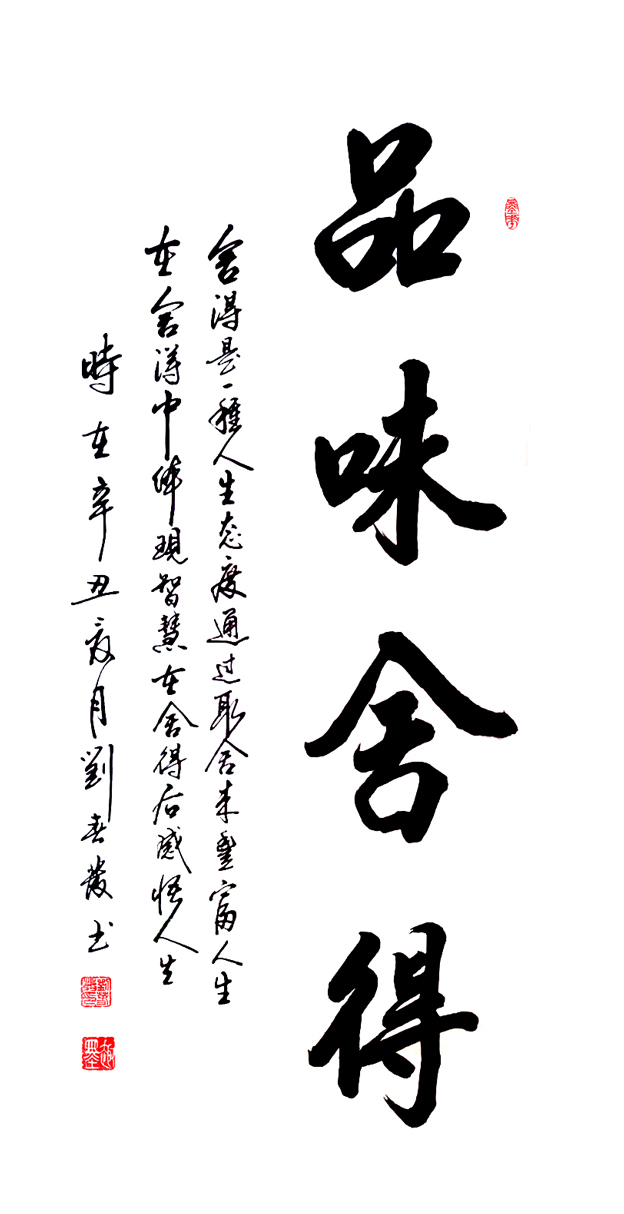 品味舍得
舍得是一種人生态度通过取舍来豐富人生
在舍得中体現智慧在舍得后感悟人生
時在辛丑夏月劉春發书